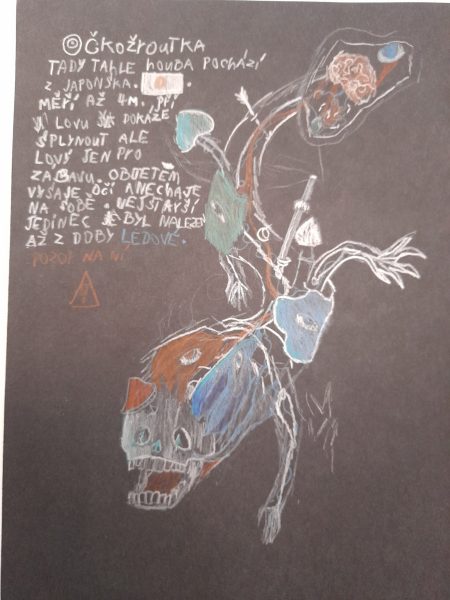 OČKOŽROUTKA
TADY TAHLE HOUBA POCHÁZÍ
Z JAPONSKA.
MĚŘÍ AŽ 4M. PŘI
LOVU DOKÁŽE
SPLYNOUT ALE
LOVÍ JEN PRO
ZÁBAVU. OBĚTEM
VYSAJE OČI A NECHAJE
NA SOBĚ. NEJSTARŠÍ
JEDINEC BYL NALEZEN
AŽ Z DOBY LEDOVÉ.
POZOR NA NÍ
!